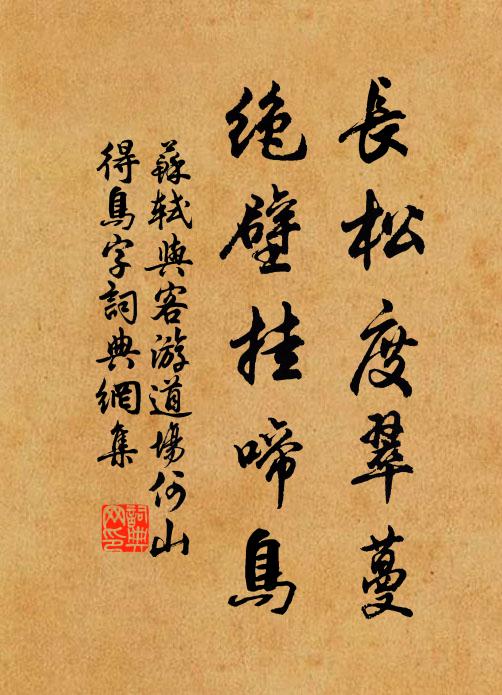 長松度翠蔓
绝壁挂啼鳥
蘇軾與客游道場何山
得鳥字詞典網集
詞典
网印